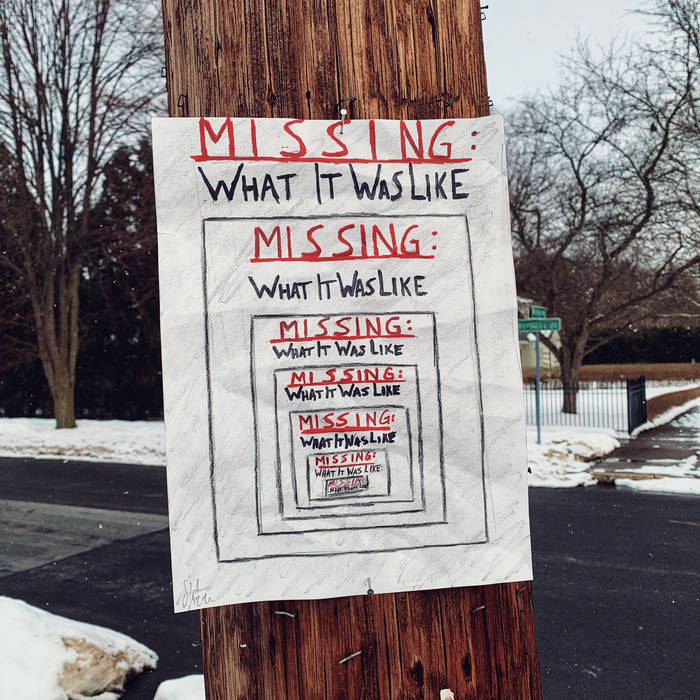 MISSING:
WHAT IT WAS LIKE
MISSING:
WHAT IT WAS LIKE
MISSING:
WHAT IT WAS LIKE
MISSING:
WHAT IT WAS LIKE
MISSING:
WHAT IT WAS LIKE
MISSING:
WHAT IT WAS LIKE
MISSING